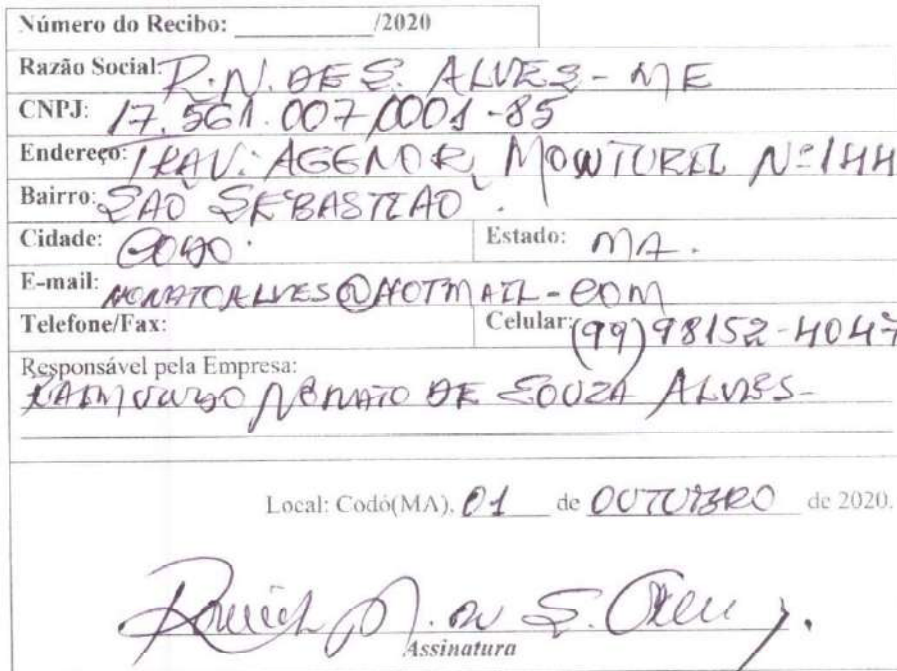 Número do Recibo: __________/2020
Razão Social: R.N. DE S. ALVES - ME
CNPJ: 17.561.007/0001-85
Endereço: TRAV: AGENOR MONTUREL Nº 144
Bairro: SÃO SEBASTIÃO.
Cidade: CODO. Estado: MA.
E-mail: NONATOALVES@HOTMAIL-COM
Telefone/Fax: Celular: (99) 98152-4047
Responsável pela Empresa:
RAIMUNDO NONATO DE SOUZA ALVES-
Local: Codó(MA), 01 de OUTUBRO de 2020.
Assinatura